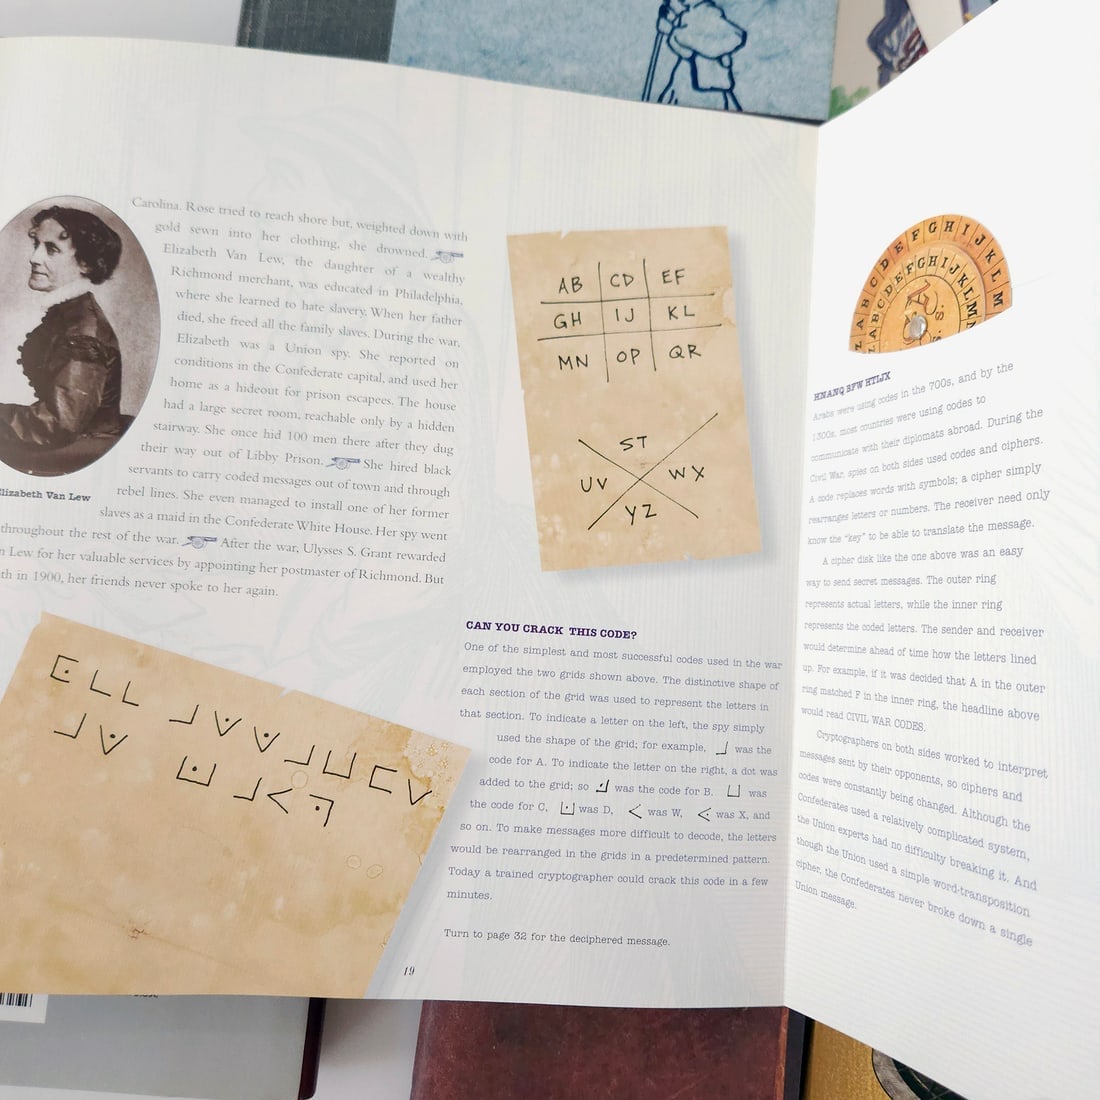 Carolina. Rose tried to reach shore but, weighted down with
gold sewn into her clothing, she drowned.
Elizabeth Van Lew, the daughter of a wealthy
Richmond merchant, was educated in Philadelphia,
where she learned to hate slavery. When her father
died, she freed all the family slaves. During the war,
Elizabeth was a Union spy. She reported on
conditions in the Confederate capital, and used her
home as a hideout for prison escapees. The house
had a large secret room, reachable only by a hidden
stairway. She once hid 100 men there after they dug
their way out of Libby Prison. She hired black
servants to carry coded messages out of town and through
rebel lines. She even managed to install one of her former
slaves as a maid in the Confederate White House. Her spy went
throughout the rest of the war. After the war, Ulysses S. Grant rewarded
Lew for her valuable services by appointing her postmaster of Richmond. But
in 1900, her friends never spoke to her again.
Elizabeth Van Lew
AB CD EF
GH IJ KL
MN OP QR
ST
UV WX
YZ
CAN YOU CRACK THIS CODE?
One of the simplest and most successful codes used in the war
employed the two grids shown above. The distinctive shape of
each section of the grid was used to represent the letters in
that section. To indicate a letter on the left, the spy simply
used the shape of the grid; for example, was the
code for A. To indicate the letter on the right, a dot was
added to the grid; so was the code for B. was
the code for C, was D, was W, was X, and
so on. To make messages more difficult to decode, the letters
would be rearranged in the grids in a predetermined pattern.
Today a trained cryptographer could crack this code in a few
minutes.
Turn to page 32 for the deciphered message.
19
Z A B C D E F G H I J K L M
A B C D E F G H I J K L M
HNANQ BFW HTIJX
Arabs were using codes in the 700s, and by the
1300s, most countries were using codes to
communicate with their diplomats abroad. During the
Civil War, spies on both sides used codes and ciphers.
A code replaces words with symbols; a cipher simply
rearranges letters or numbers. The receiver need only
know the "key" to be able to translate the message.
A cipher disk like the one above was an easy
way to send secret messages. The outer ring
represents actual letters, while the inner ring
represents the coded letters. The sender and receiver
would determine ahead of time how the letters lined
up. For example, if it was decided that A in the outer
ring matched F in the inner ring, the headline above
would read CIVIL WAR CODES.
Cryptographers on both sides worked to interpret
messages sent by their opponents, so ciphers and
codes were constantly being changed. Although the
Confederates used a relatively complicated system,
the Union experts had no difficulty breaking it. And
though the Union used a simple word-transposition
cipher, the Confederates never broke down a single
Union message.